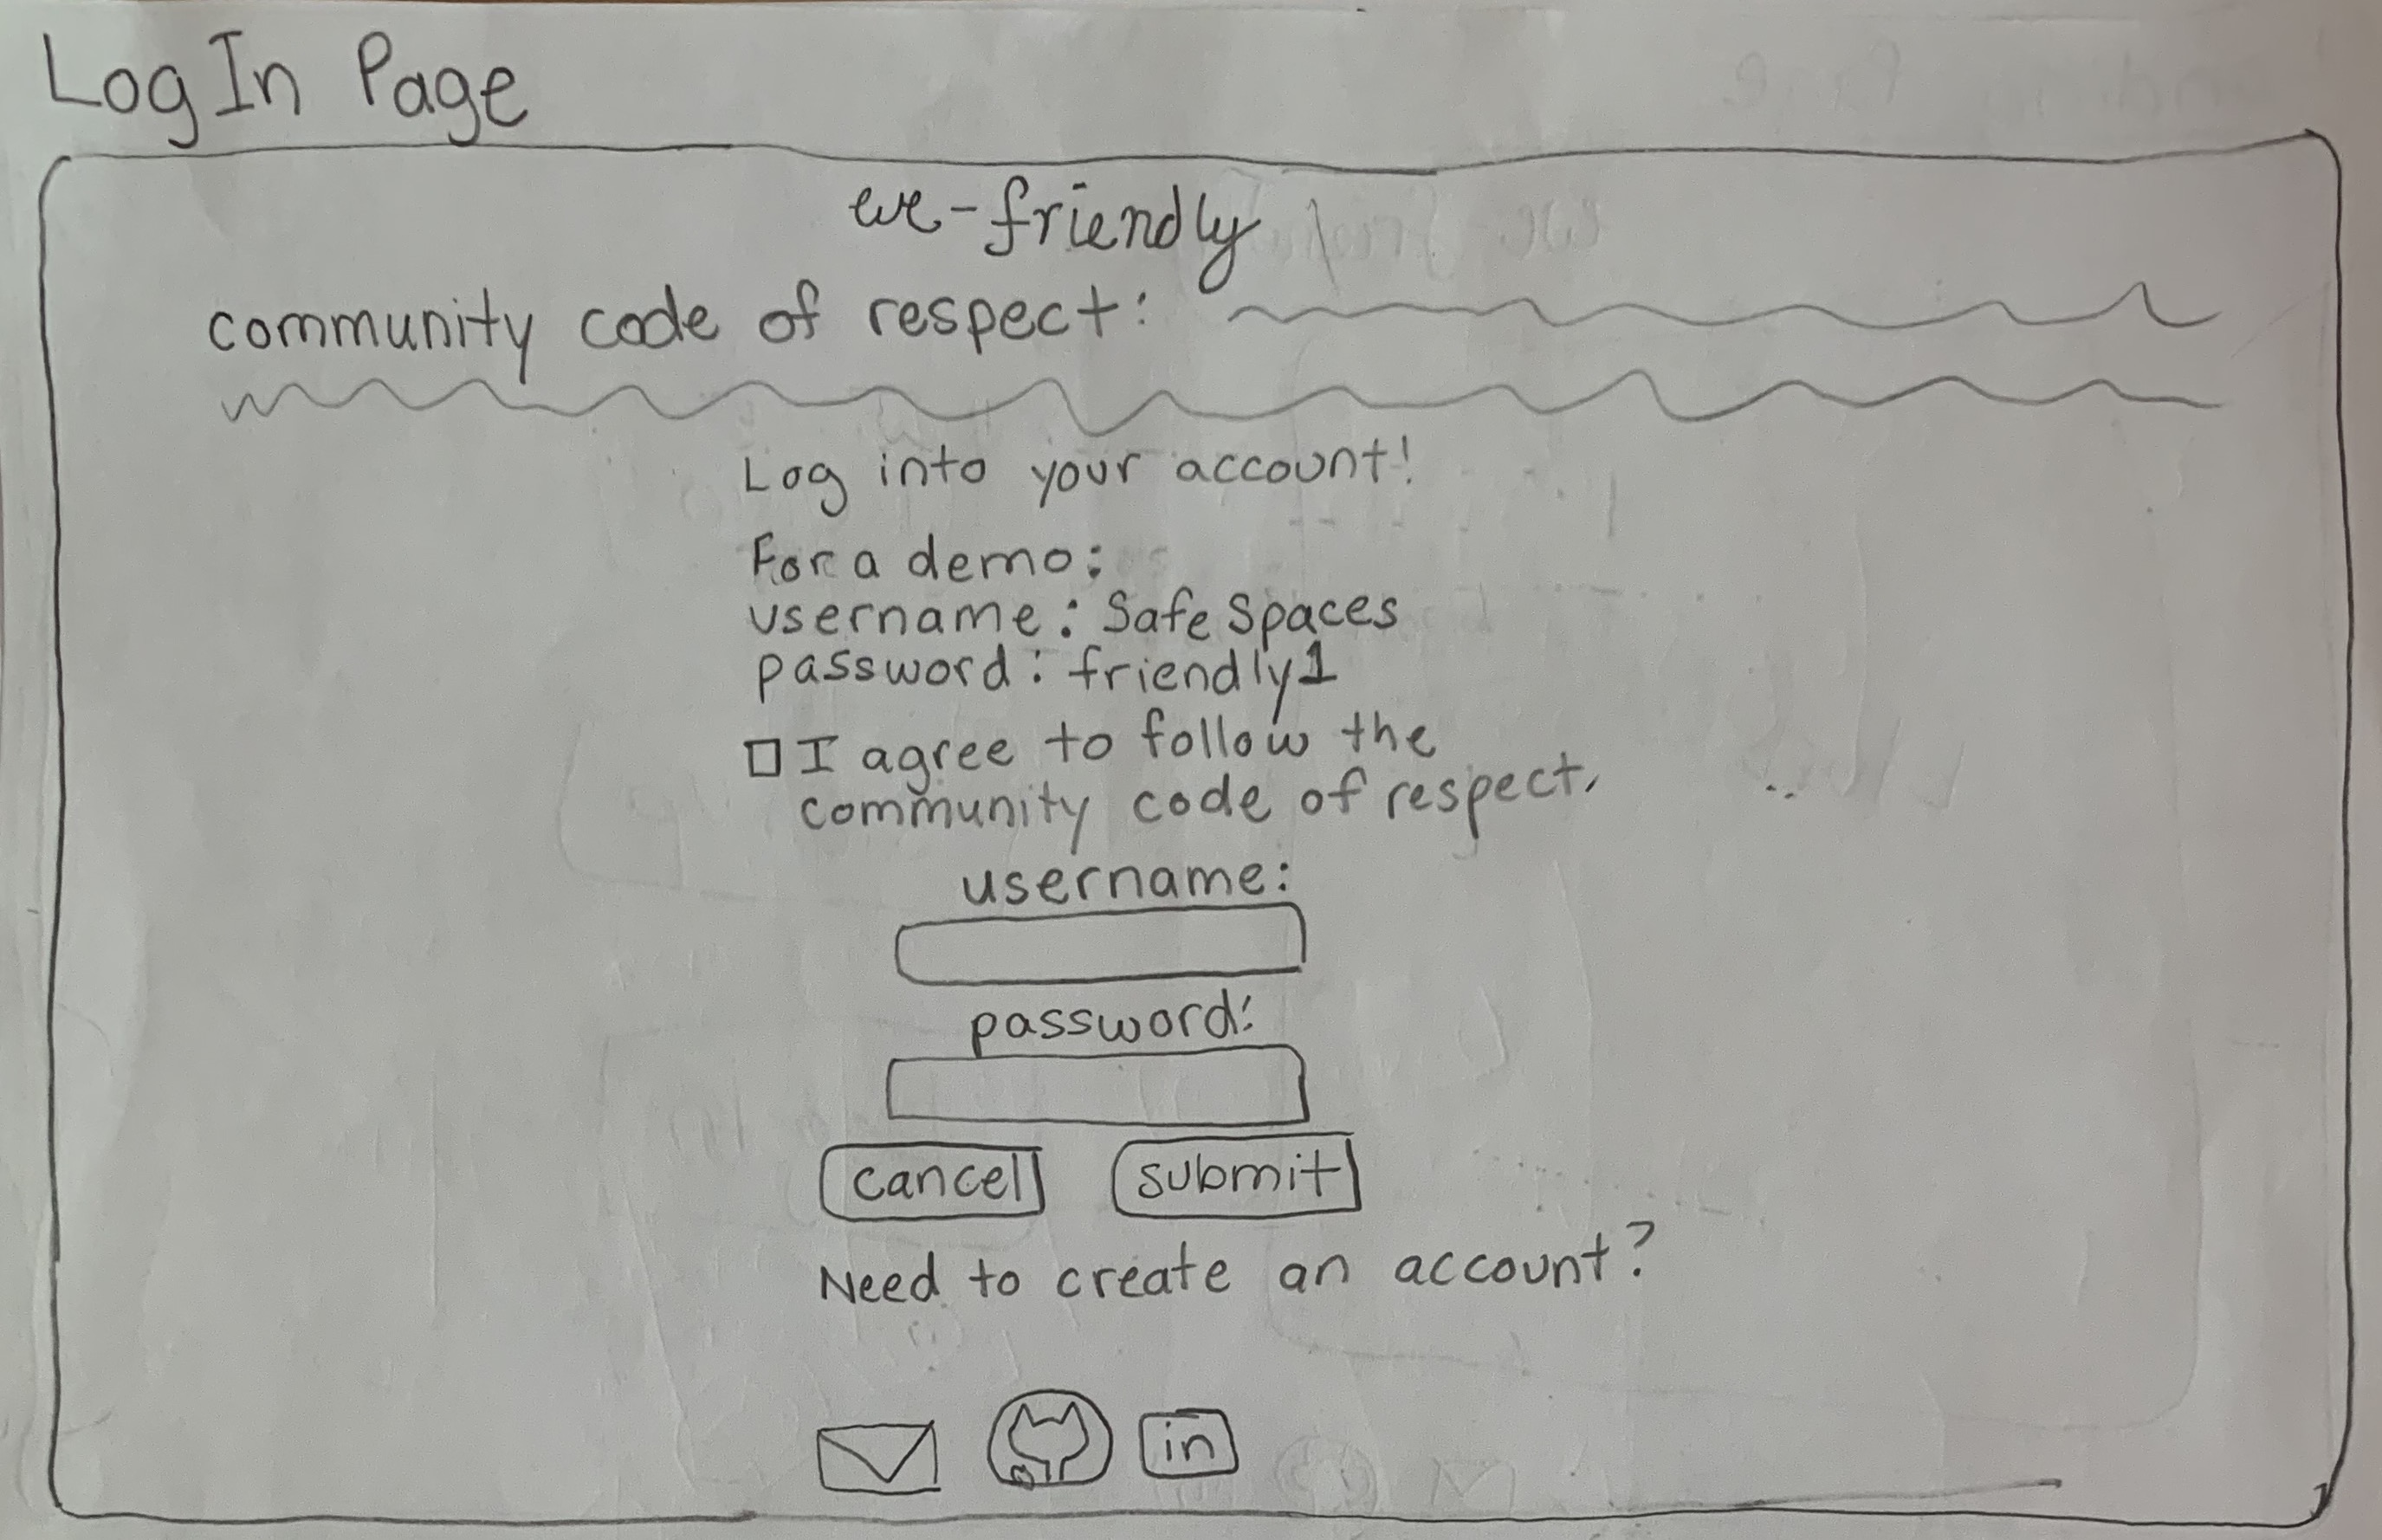 Log In Page
we-friendly
community code of respect:
Log into your account!
For a demo:
username: Safe Spaces
password: friendly1
I agree to follow the
community code of respect.
username:
password:
cancel submit
Need to create an account?
in